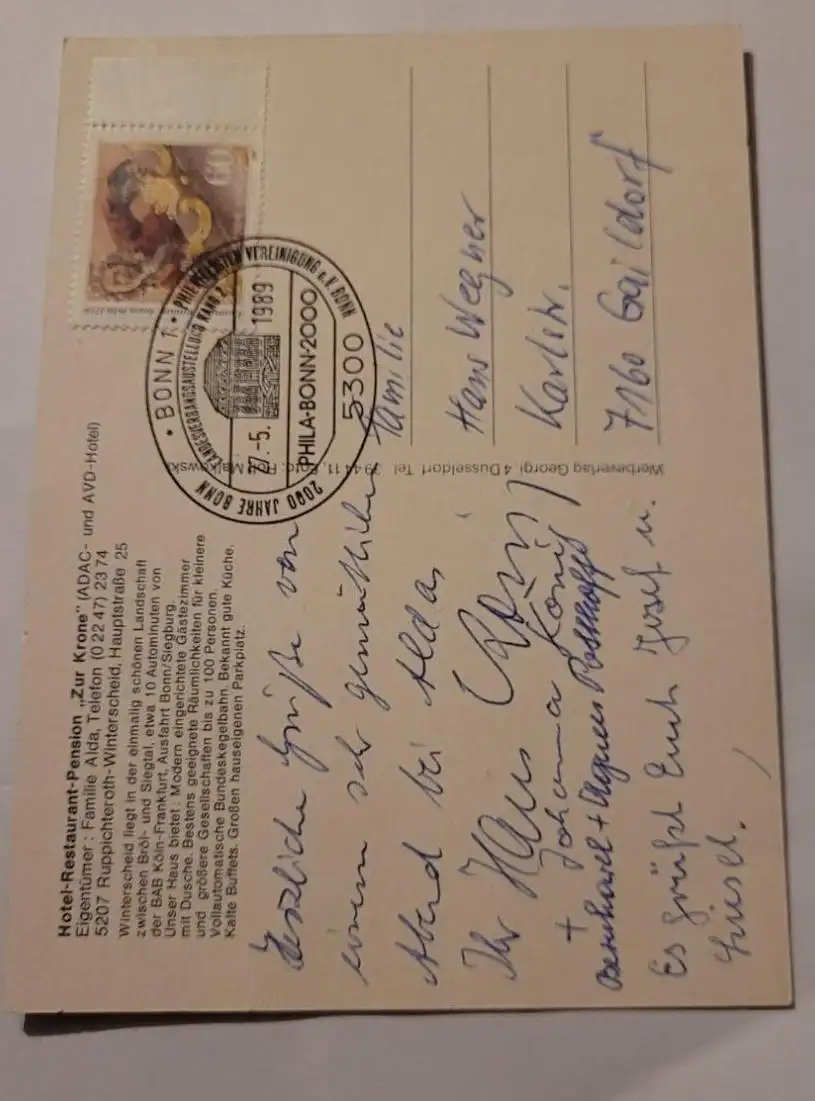 Hotel-Restaurant-Pension „Zur Krone" (ADAC- und AVD-Hotel)
Eigentümer : Familie Alda, Telefon (0 22 47) 23 74
5207 Ruppichteroth-Winterscheid, Hauptstraße 25
Winterscheid liegt in der einmalig schönen Landschaft
zwischen Bröl- und Siegtal, etwa 10 Autominuten von
der BAB Köln-Frankfurt, Ausfahrt Bonn/Siegburg.
Unser Haus bietet : Modern eingerichtete Gästezimmer
mit Dusche. Bestens geeignete Räumlichkeiten für kleinere
und größere Gesellschaften bis zu 100 Personen.
Vollautomatische Bundeskegelbahn. Bekannt gute Küche.
Kalte Buffets. Großen hauseigenen Parkplatz.
Herzliche Grüße von
einem sehr gemütlichen
Abend bei Aldas
Ihr Hans König
+ Johanna König
Bernhard + Agnes
Es grüßt Euch Josef u.
Liesel.
Werbeverlag Georgi 4 Düsseldorf Tel. 39 44 11, Foto: Rob Malkowski
60
BONN 1
PHILATELISTEN VEREINIGUNG e.V. BONN
LANDESVERBANDSAUSSTELLUNG RANG 2
27.-5. 1989
PHILA-BONN-2000
2000 JAHRE BONN
5300
Familie
Hans Wegner
Karlstr.
7160 Gaildorf